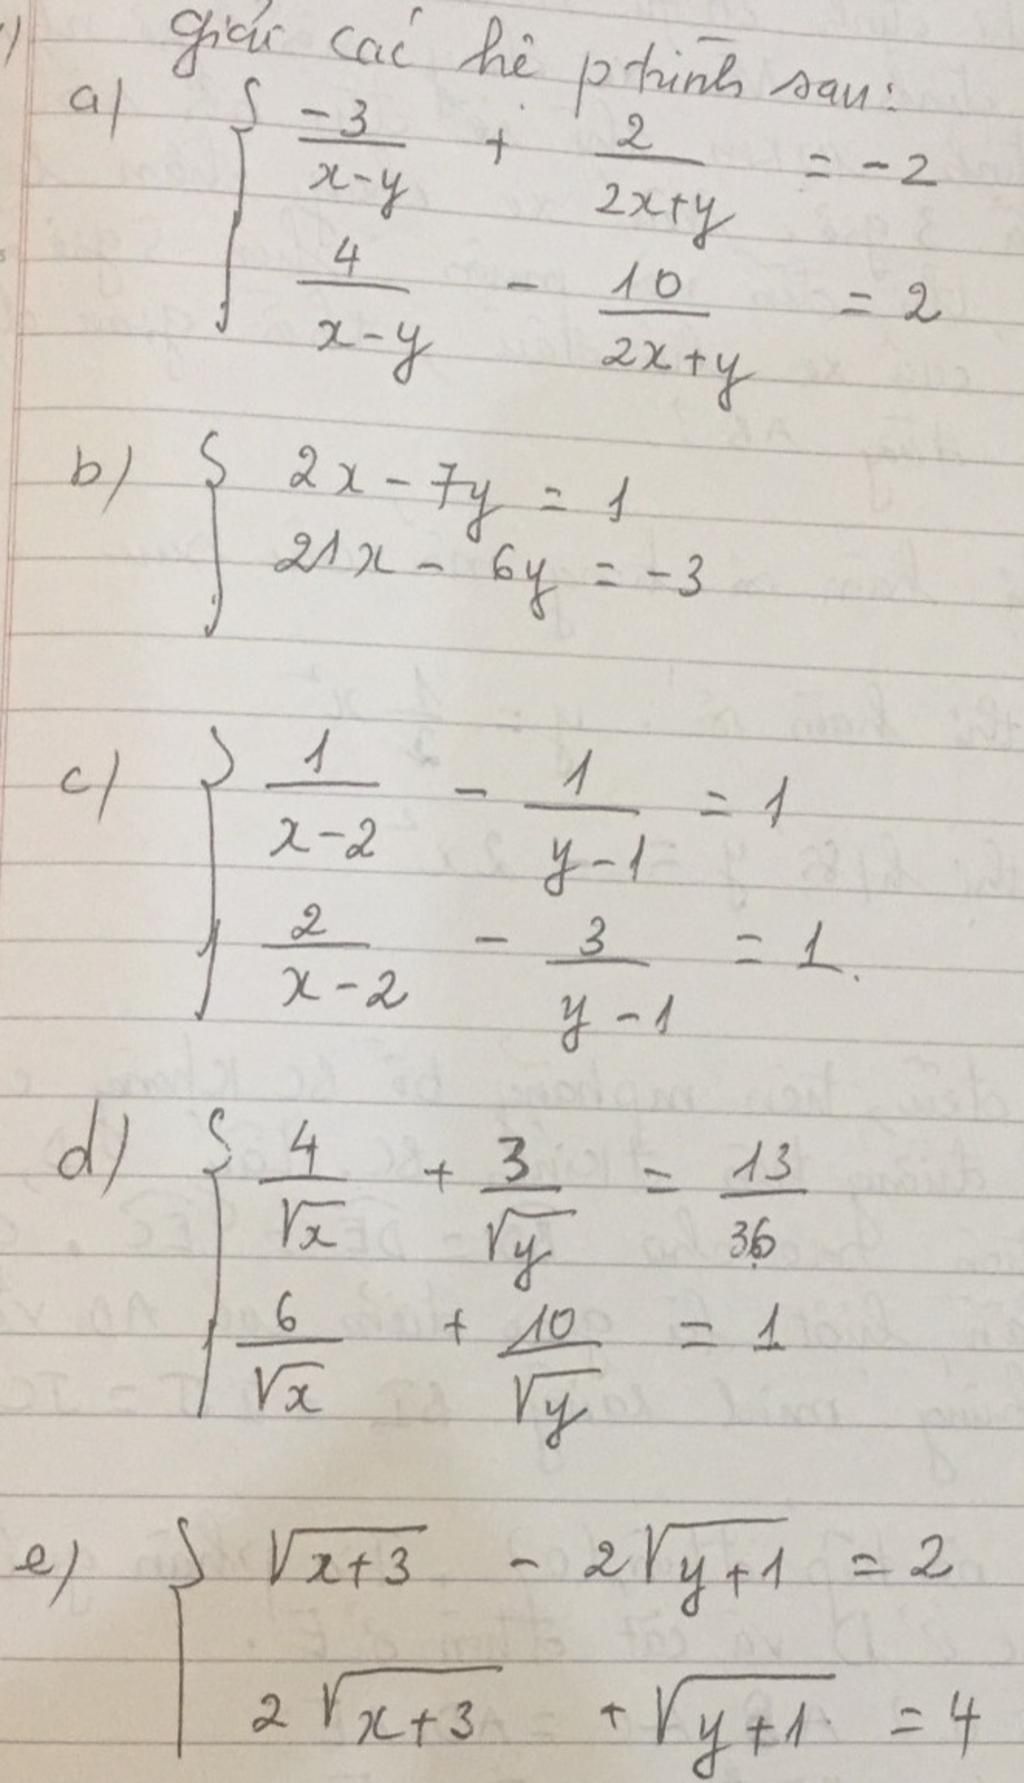 giải các hệ ptrình sau:
a) { -3/(x-y) + 2/(2x+y) = -2
4/(x-y) - 10/(2x+y) = 2
b) { 2x - 7y = 1
21x - 6y = -3
c) { 1/(x-2) - 1/(y-1) = 1
2/(x-2) - 3/(y-1) = 1.
d) { 4/√x + 3/√y = 13/36
6/√x + 10/√y = 1
e) { √(x+3) - 2√(y+1) = 2
2√(x+3) + √(y+1) = 4